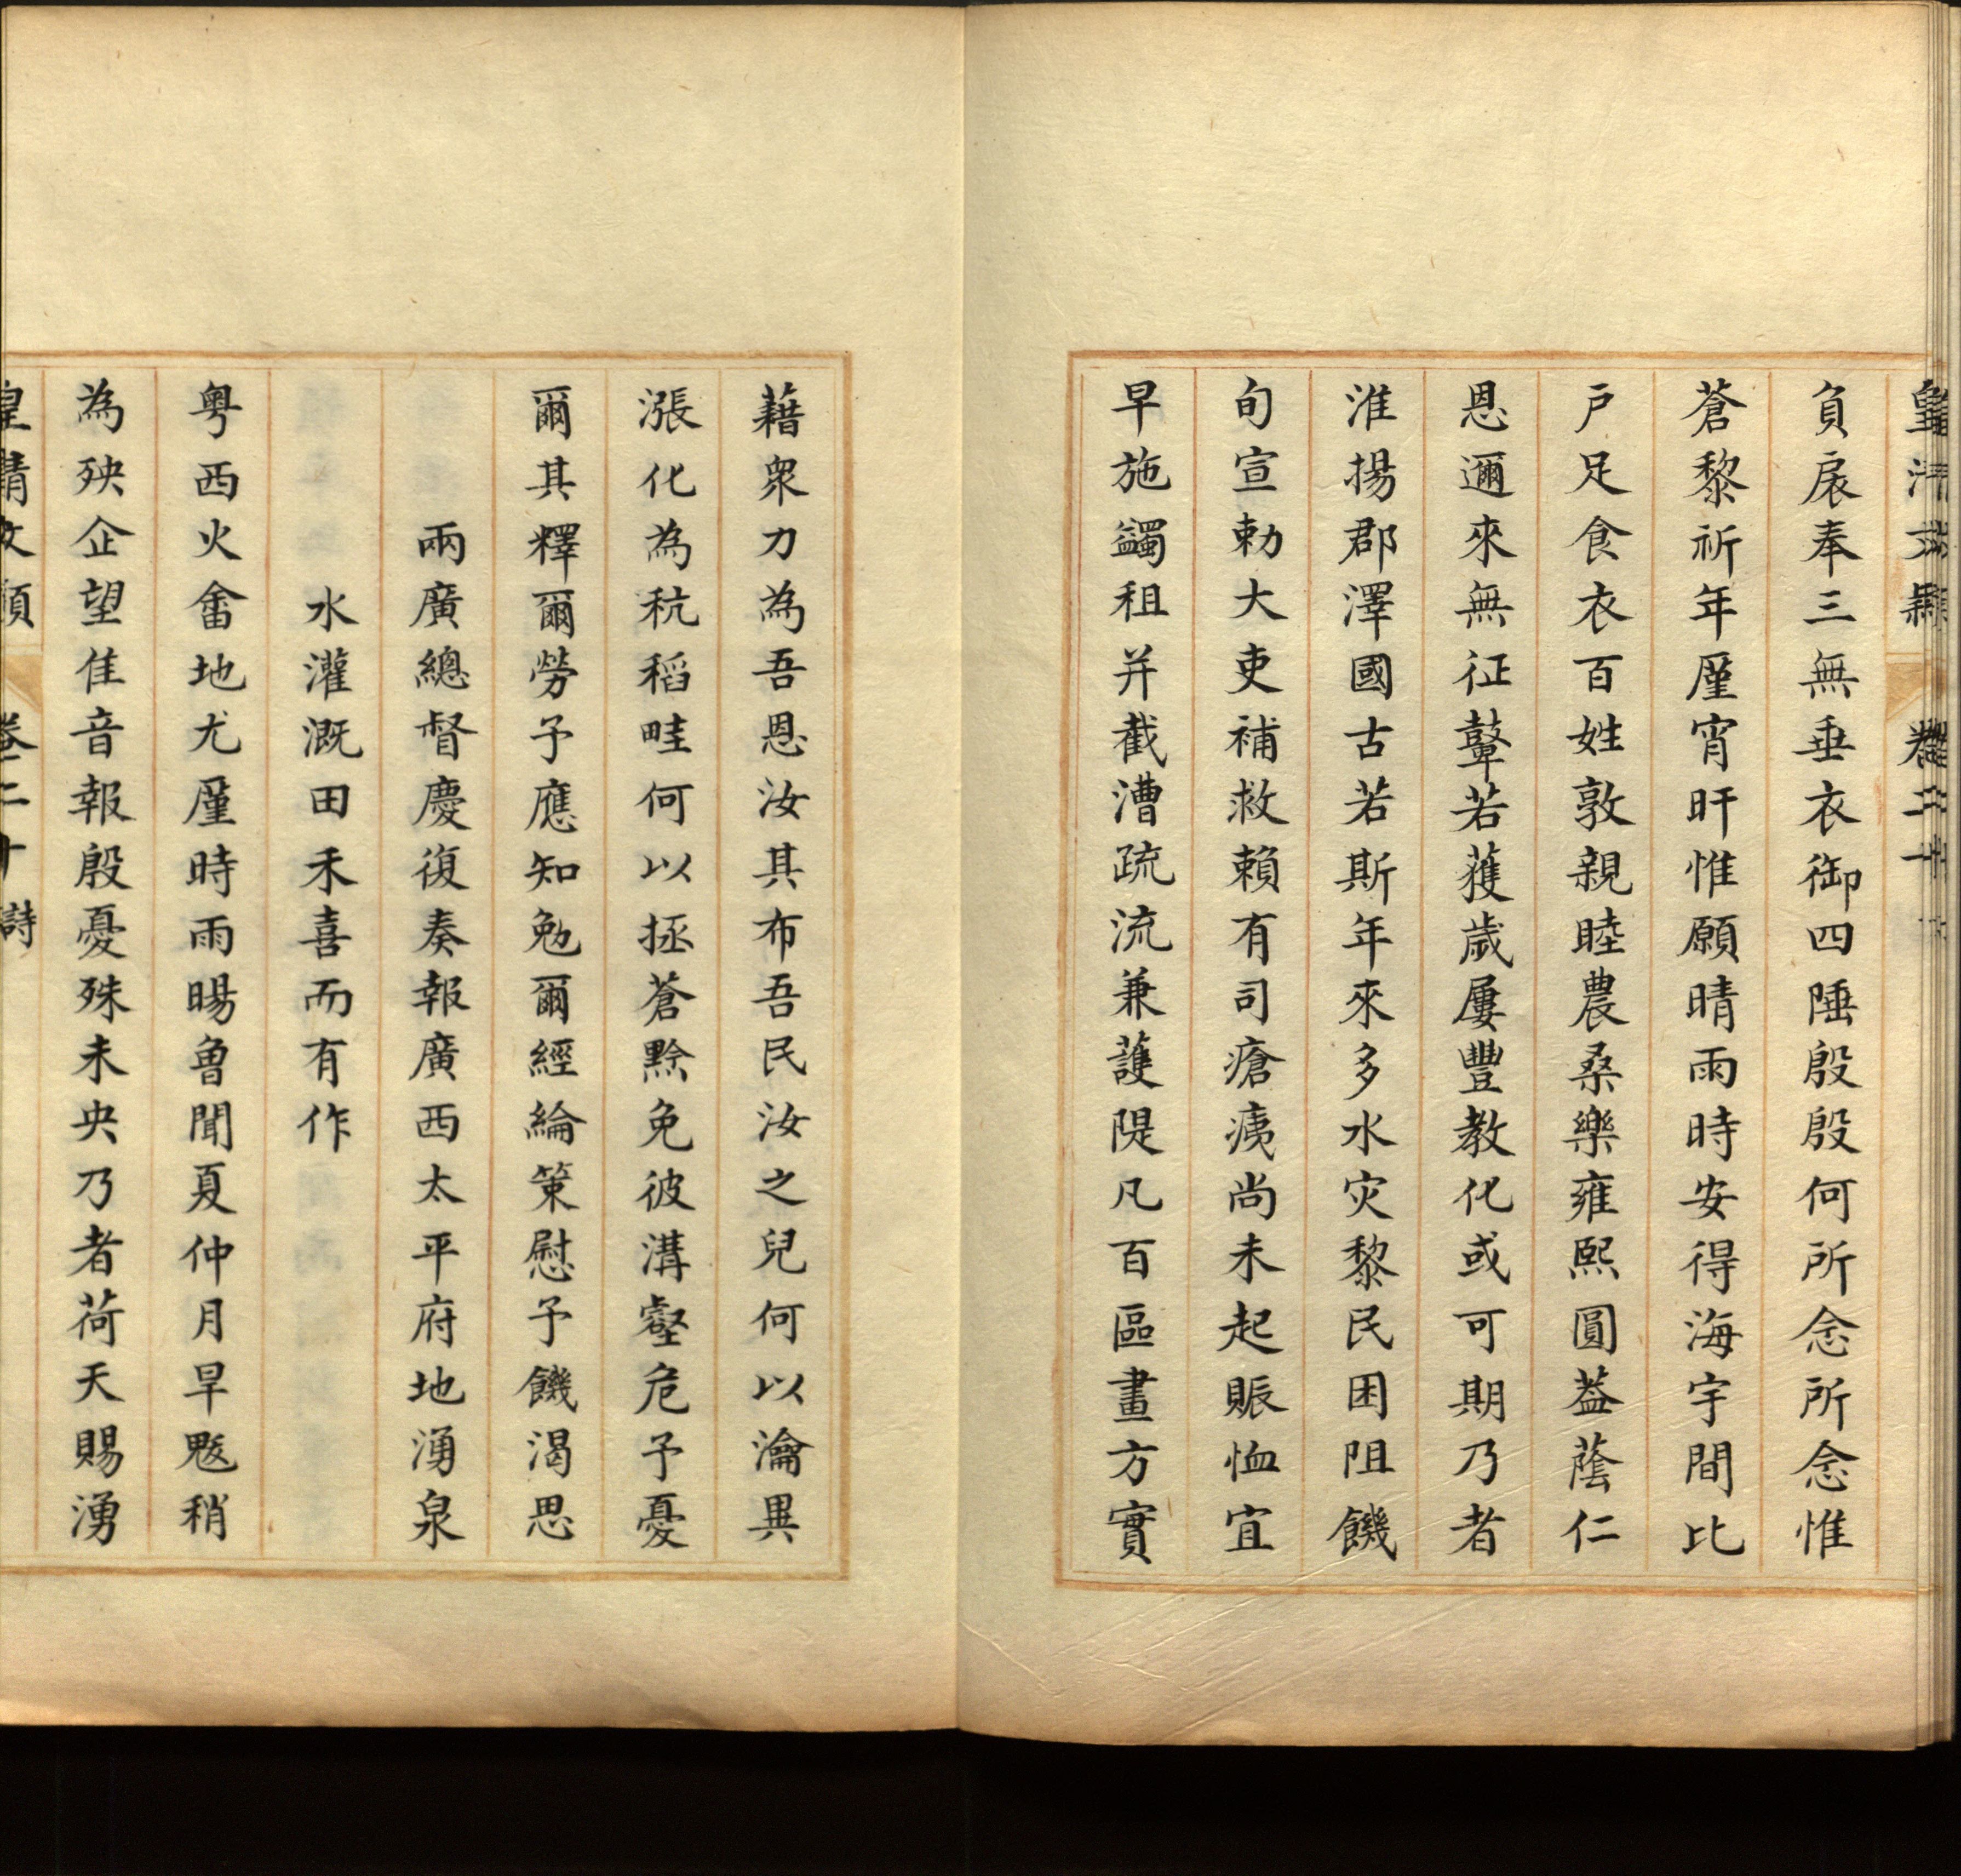 負扆奉三無垂衣御四陲殷殷何所念所念惟
蒼黎祈年廑宵旰惟願晴雨時安得海宇間比
戸足食衣百姓敦親睦農桑樂雍熙圓葢蔭仁
恩邇來無征鼙若獲歲屢豐教化或可期乃者
淮揚郡澤國古若斯年來多水灾黎民困阻饑
旬宣勅大吏補救賴有司瘡痍尚未起賑恤宜
早施蠲租并截漕疏流兼護隄凡百區畫方實
藉衆力為吾恩汝其布吾民汝之兒何以瀹異
漲化為秔稻畦何以拯蒼黔免彼溝壑危予憂
爾其釋爾勞予應知勉爾經綸策慰予饑渴思
兩廣總督慶復奏報廣西太平府地湧泉
水灌溉田禾喜而有作
粵西火畬地尤廑時雨暘魯聞夏仲月旱魃稍
為殃企望佳音報殷憂殊未央乃者荷天賜湧
皇清文類 卷二十 詩